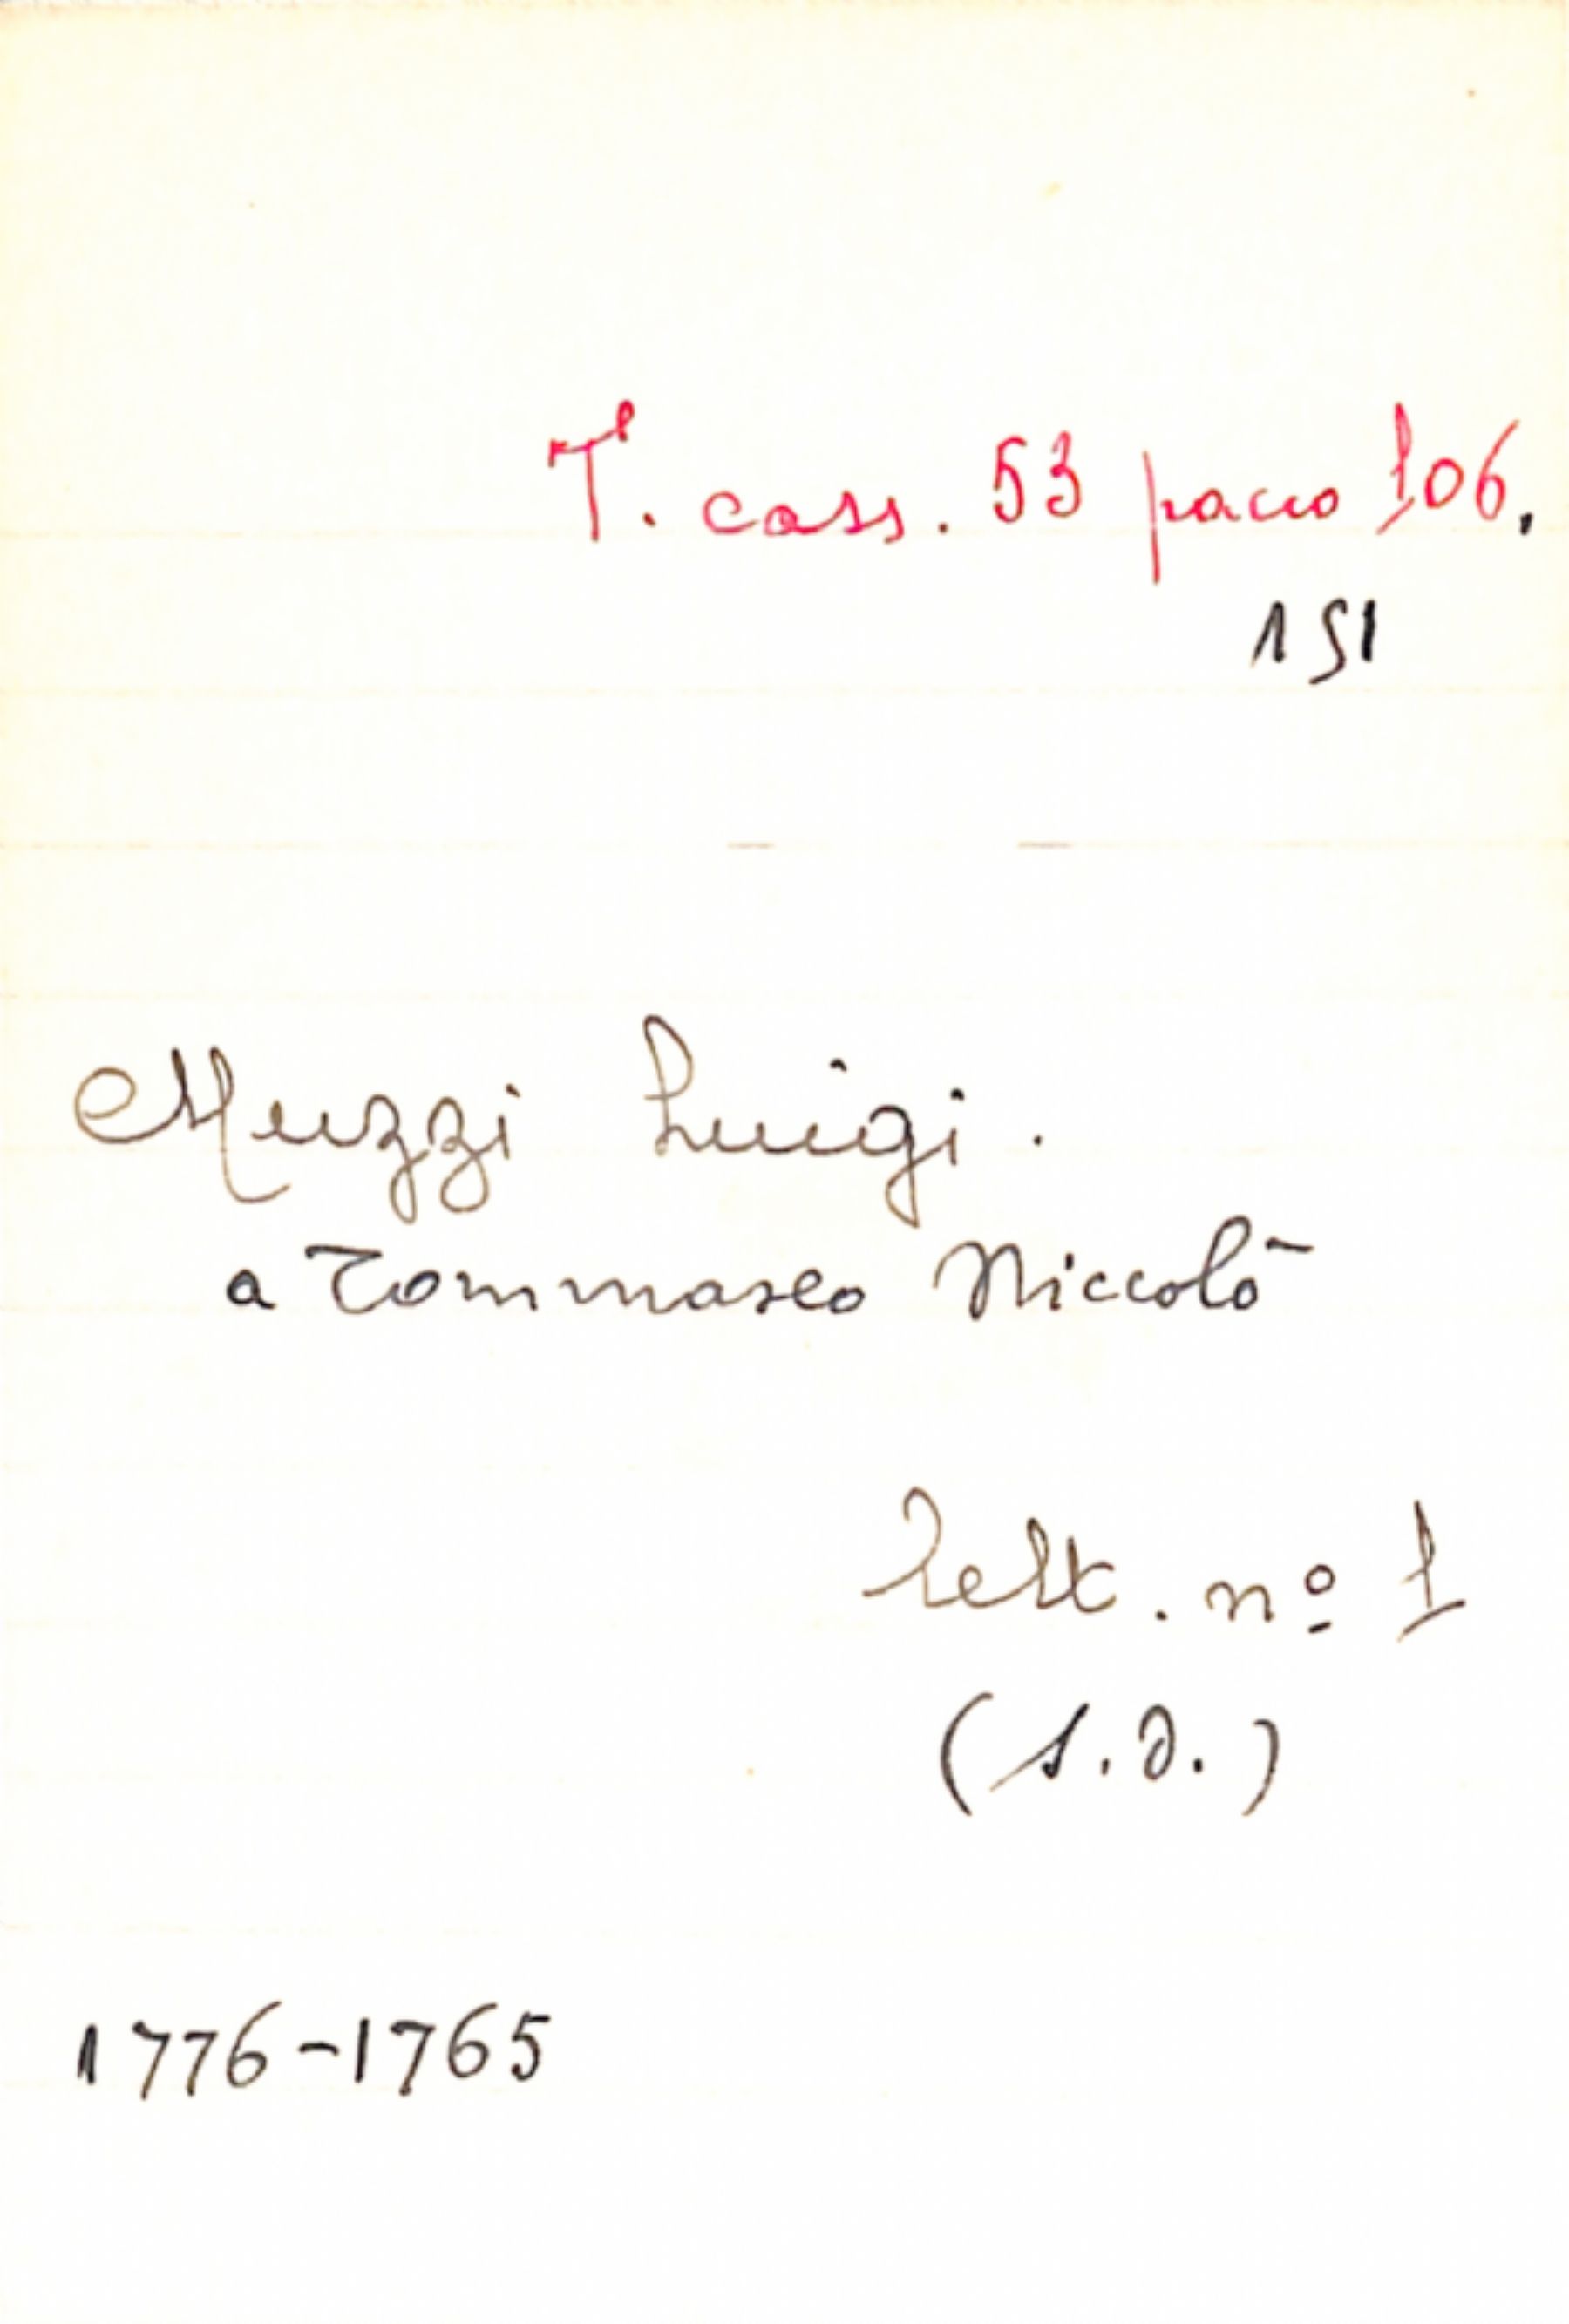 T. cass. 53 pacco 106.
151
Muzzi Luigi.
a Tommaseo Niccolò
lett. nº 1
(s.d.)
1776-1765